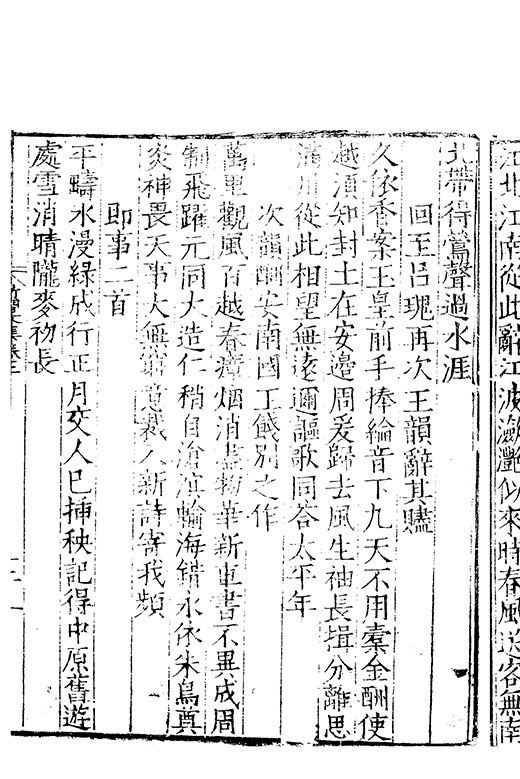 江北江南從此辭江波瀲灧似來時春風送客無南
北帶得鶯聲過水涯
回至呂瑰再次王韻辭其贐
久依香案玉皇前手捧綸音下九天不用橐金酬使
越須知封土在安邊周爰歸去風生袖長揖分離思
滿川從此相望無遠邇謳歌同答太平年
次韻酬安南國王餞別之作
萬里觀風百越春瘴烟消盡物華新車書不異成周
制飛躍元同大造仁稍自滄溟輸海錯永依朱鳥奠
炎神畏天事大無窮意裁入新詩寄我頻
即事二首
平疇水漫綠成行正月交人已插秧記得中原舊遊
處雪消晴隴麥初長